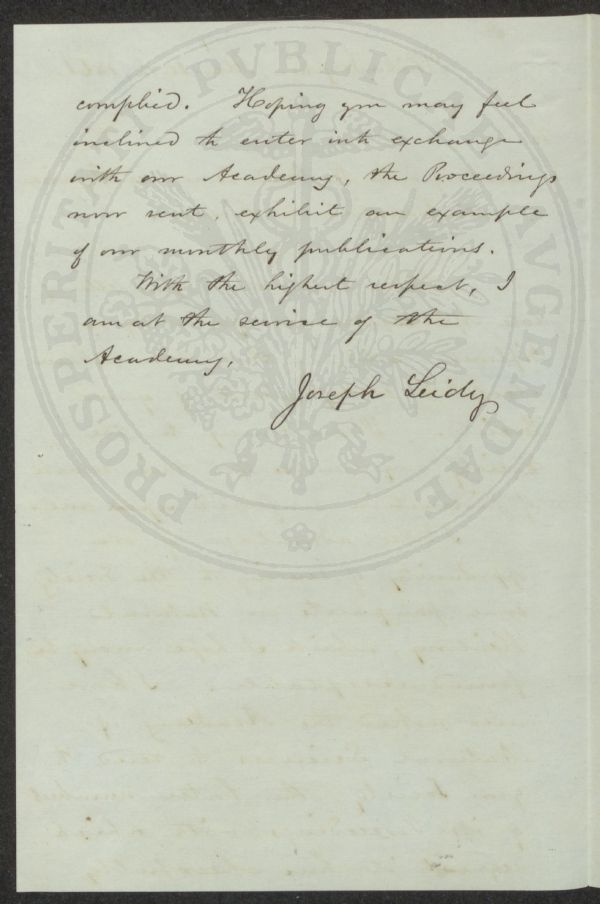 PROSPERITATI PVBLICAE AVGENDAE
complied. Hoping you may feel
inclined to enter into exchange
with our Academy, the Proceedings
now sent, exhibit an example
of our monthly publications.
With the highest respect, I
am at the service of the
Academy,
Joseph Leidy